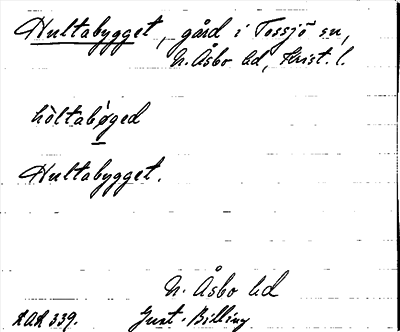 Hultabygget, gård i Tossjö sn,
N. Åsbo hd, Krist. l.
hòltabýged
Hultabygget.
N. Åsbo hd
LAL 339. Gust. Billing